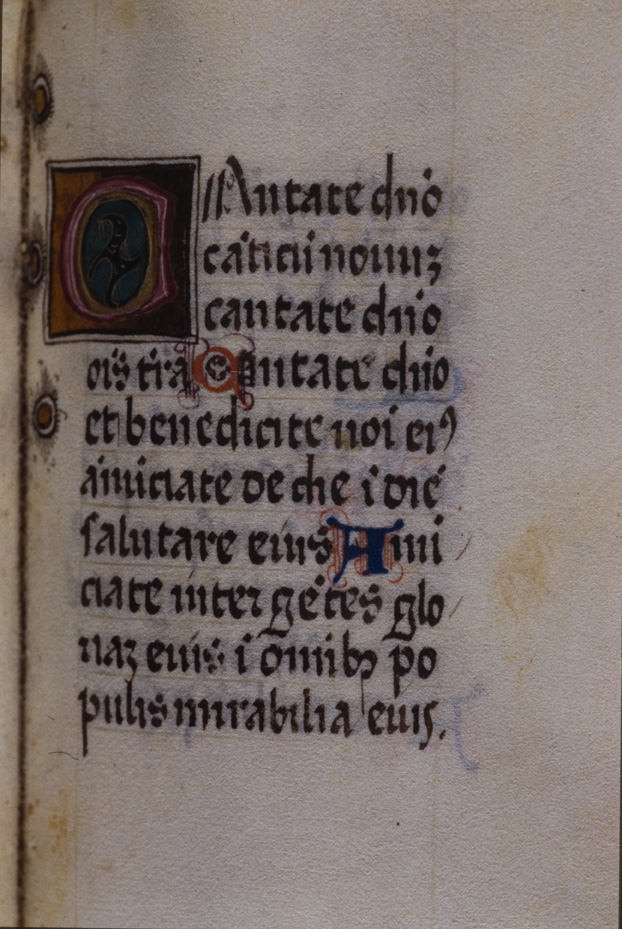 CAntate dño
cãticũ nouuʒ
cantate dño
oĩs t̃ra Cantate dño
et benedicite noĩ eiꝰ
ãnũciate de die ĩ diẽ
salutare eius Annũ
ciate inter gẽtes glo
riaʒ euis ĩ omnibꝫ po
pulis mirabilia euis.